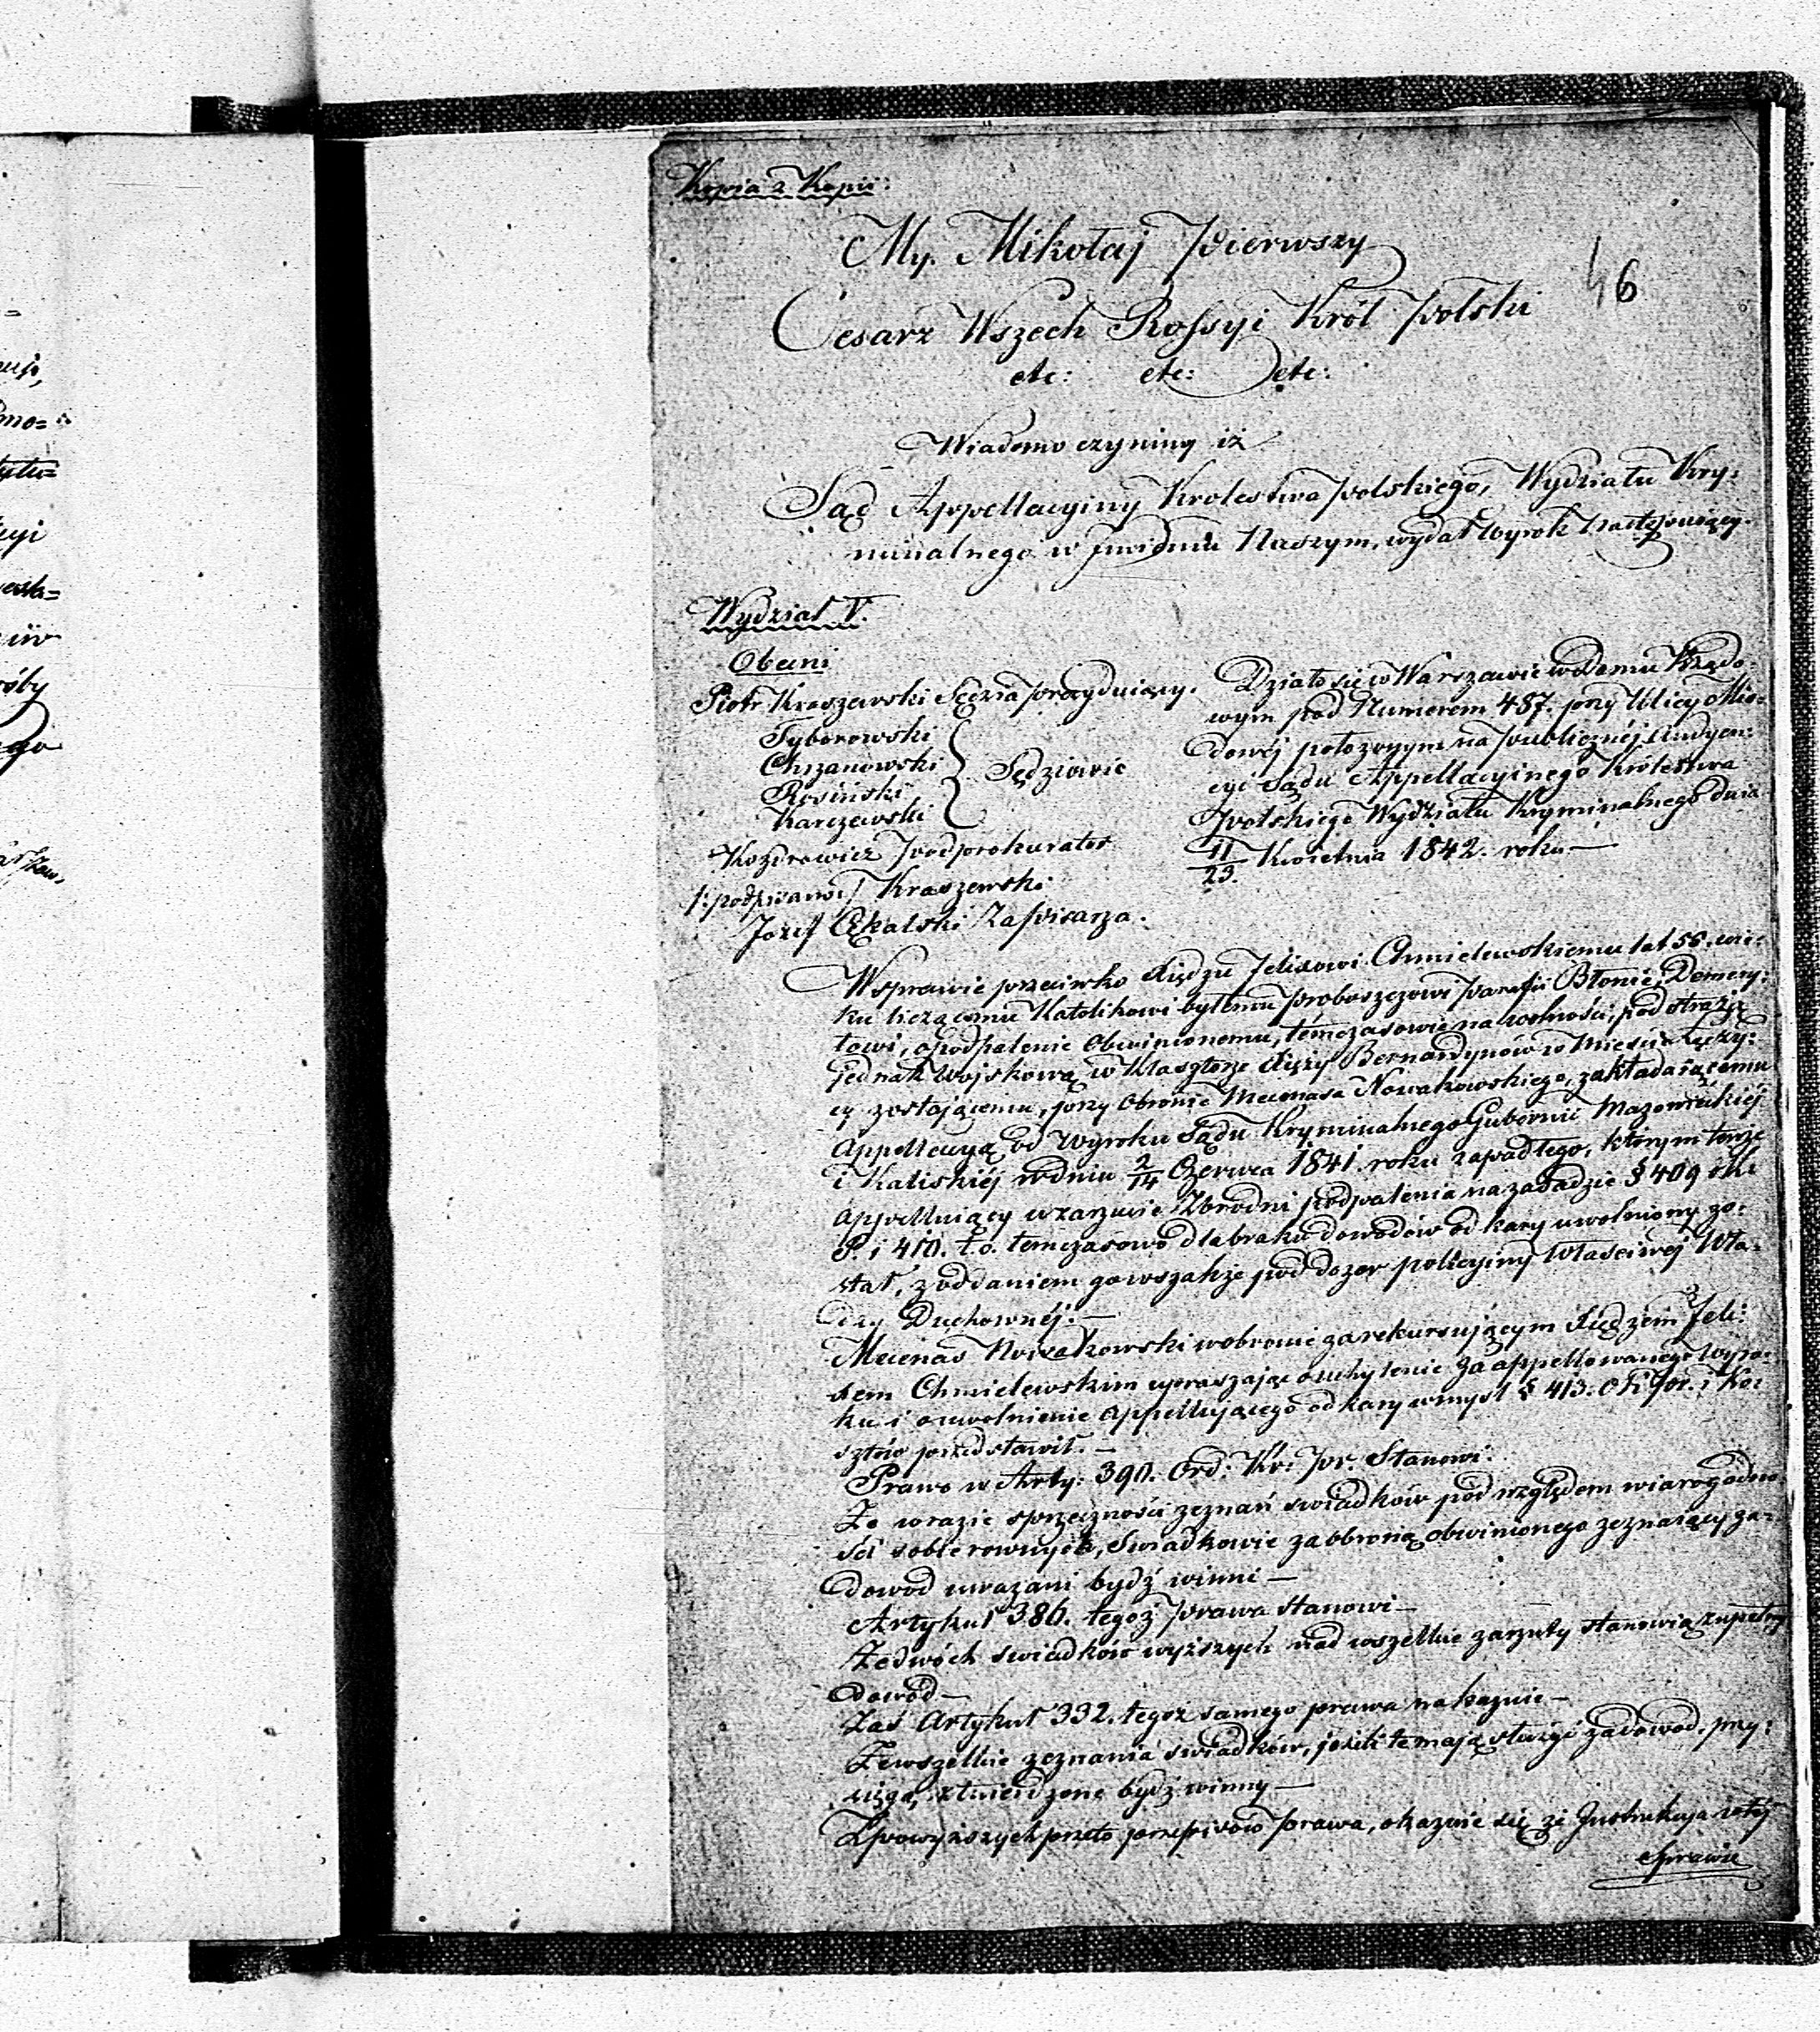 Kopia z Kopii:
46
My. Mikołaj Pierwszy
Cesarz Wszech Rossyi Król Polski
etc: etc: etc:
Wiadomo czyniny iż
Sąd Appellacyiny Krolestwa Polskiego, Wydziału Kry:
minalnego w Imieniu Naszym, wydał Wyrok następuiący.
Wydział V.
Obecni
Piotr Kraszewski Sędzia prezyduiący.
Tyborowski
Chrzanowski
Rosiński
Karczewski
Sędziowie
Kozirowicz Podprokurator
/:podpisano:/ Kraszewski
Jozef Cękalski Za Pisarza.
Działo się w Warszawie w Domu Rządo-
wym pod Numerem 487. przy Ulicy Mio-
dowéj położonym na Publicznéj Audyen:
cyi Sądu Appellacyinego Krolestwa
Polskiego Wydziału Kryminalnego dnia
11/23. Kwietnia 1842. roku —
W sprawie przeciwko Xiędzu Felixowi Chmielewskiemu lat 56. wie:
ku liczącemu Katolikowi byłemu Proboszczowi Parafii Błonie, Demery:
towi, o podpalenie obwinionemu, témczasowie na wolności, pod strażą
jednak Wojskową w Klasztorze Xięży Bernardynów w Mieście Łęczy:
cy zostającemu, przy obronie Mecenasa Nowakowskiego, zakładaiącemu
Appellacyą od Wyroku Sądu Kryminalnego Gubernii Mazowieckiéj
i Kaliskiéj w dniu 2/14 Czerwca 1841. roku zapadłego, którym tenże
appelluiący w zarzucie Zbrodni podpalenia na zasadzie § 409 OK
P i 410. t.o. temczasowo dla braku dowodów od kary uwolniony zo:
stał, z oddaniem go wszakże pod dozor policyiny Właściwéj Wła:
dzy Duchownéj. —
Mecenas Nowakowski w obronie za rekursującym Xiędzem Feli:
xem Chmielewskim upraszając o uchylenie zaappellowanego Wyro:
ku i o uwolnienie appellującego od kary w myśl § 413. O K Pr. i Ko:
sztów przedstawił. —
Prawo w Arty: 390. Ord: Kr: Pr. Stanowi:
Że w razie sprzeczności zeznań swiadków pod względem wiarogodno
ści sobie rownych, Swiadkowie za obroną obwinionego zeznaiący za-
dowod uwazani bydź winni —
Artykuł 386. tegoż Prawa stanowi —
Że dwóch swiadków wyższych nad wszelkie zarzuty stanowią zupełny
dowód —
Zaś Artykuł 332. tegoż samego prawa nakazuie —
Że wszelkie zeznania swiadków, jeżeli te mają służyć za dowod, przy:
sięgą stwierdzone bydź winny —
Z powyższych przeto przepisów Prawa, okazuie się że Instrukcya w téj
Sprawie